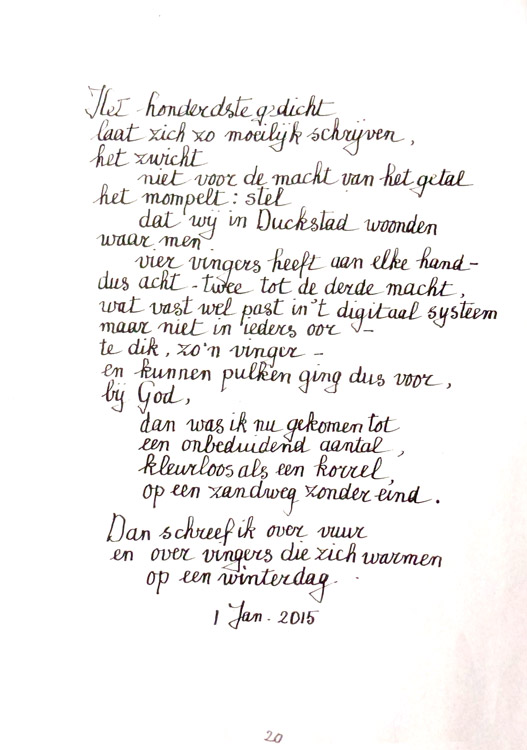 Het honderdste gedicht
laat zich zo moeilijk schrijven,
het zwicht
niet voor de macht van het getal
het mompelt: stel
dat wij in Duckstad woonden
waar men
vier vingers heeft aan elke hand-
dus acht - twee tot de derde macht,
wat vast wel past in't digitaal systeem
maar niet in ieders oor -
te dik, zo'n vinger -
en kunnen pulken ging dus voor,
bij God,
dan was ik nu gekomen tot
een onbeduidend aantal,
kleurloos als een korrel,
op een zandweg zonder eind.
Dan schreef ik over vuur
en over vingers die zich warmen
op een winterdag.
1 Jan. 2015
20